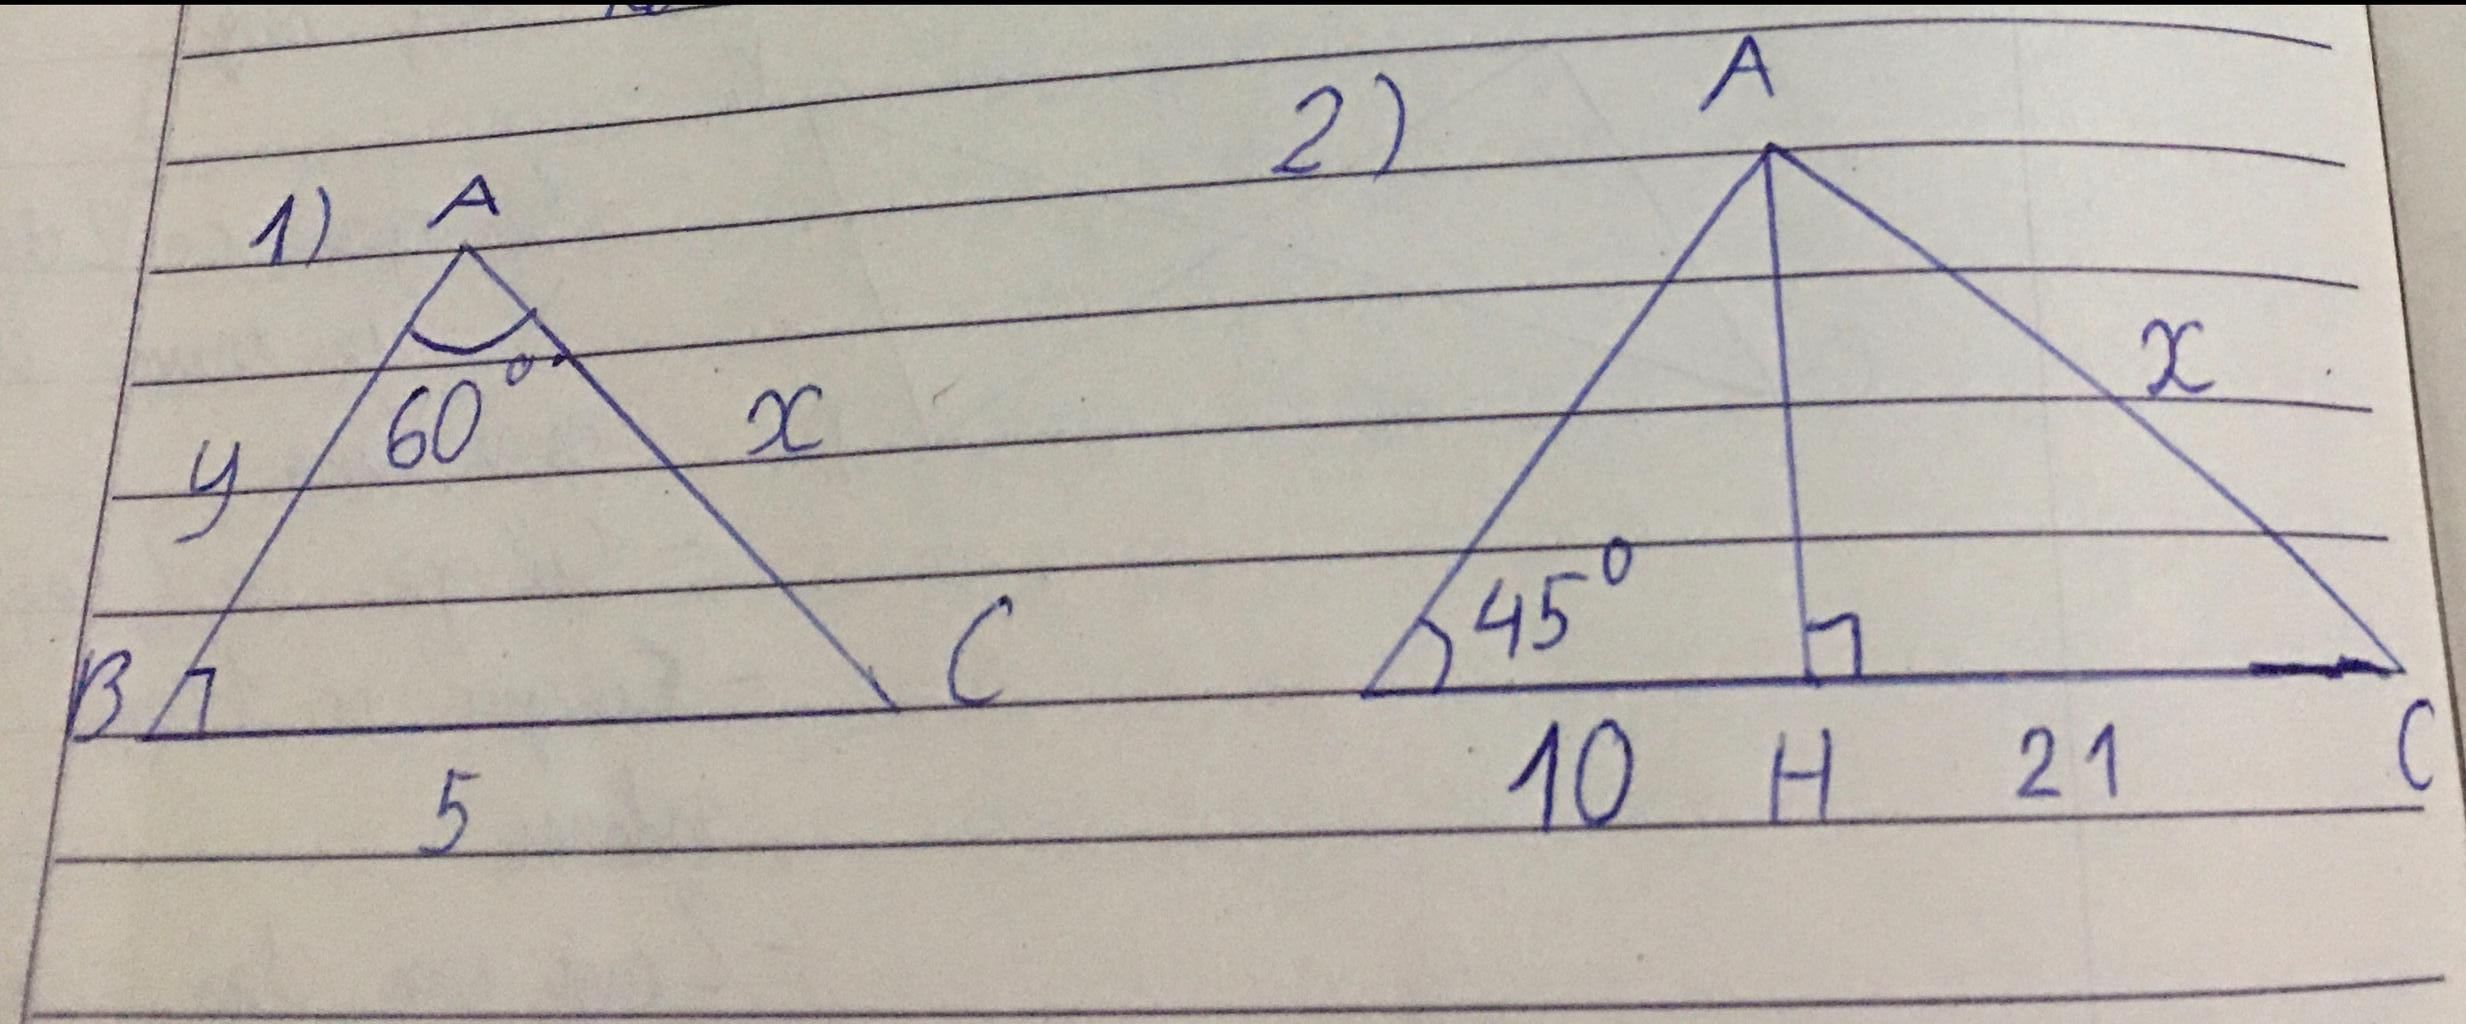 1)
A
60°
y
x
B
C
5
2)
A
x
45°
10 H 21 C